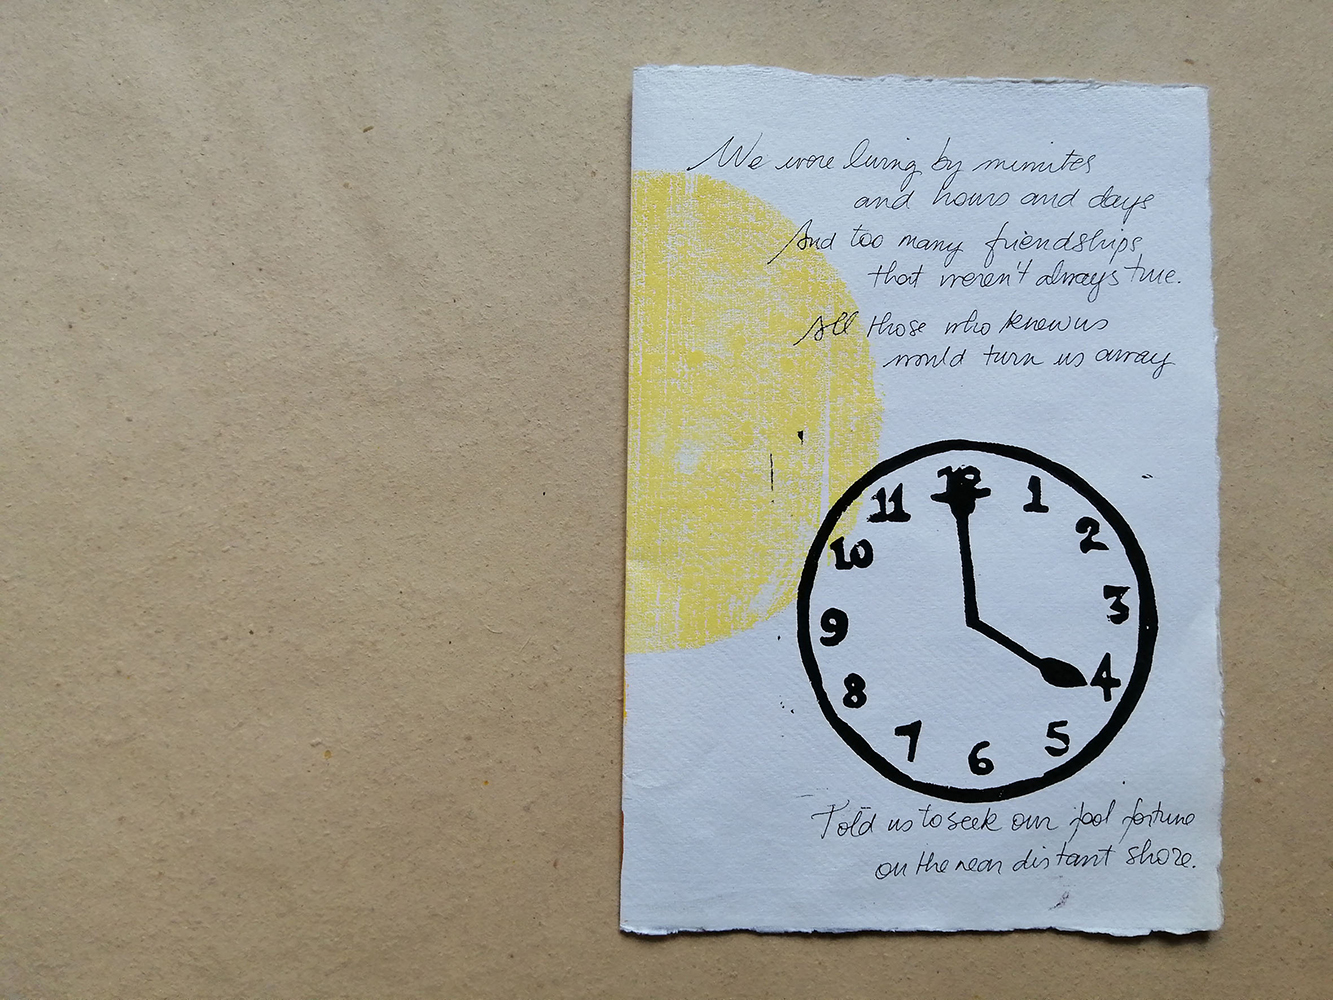 We were living by minutes
and hours and days
And too many friendships
that weren't always true.
All those who knew us
would turn us away
11 12 1
10 2
9 3
8 4
7 6 5
Told us to seek our fool fortune
on the near distant shore.